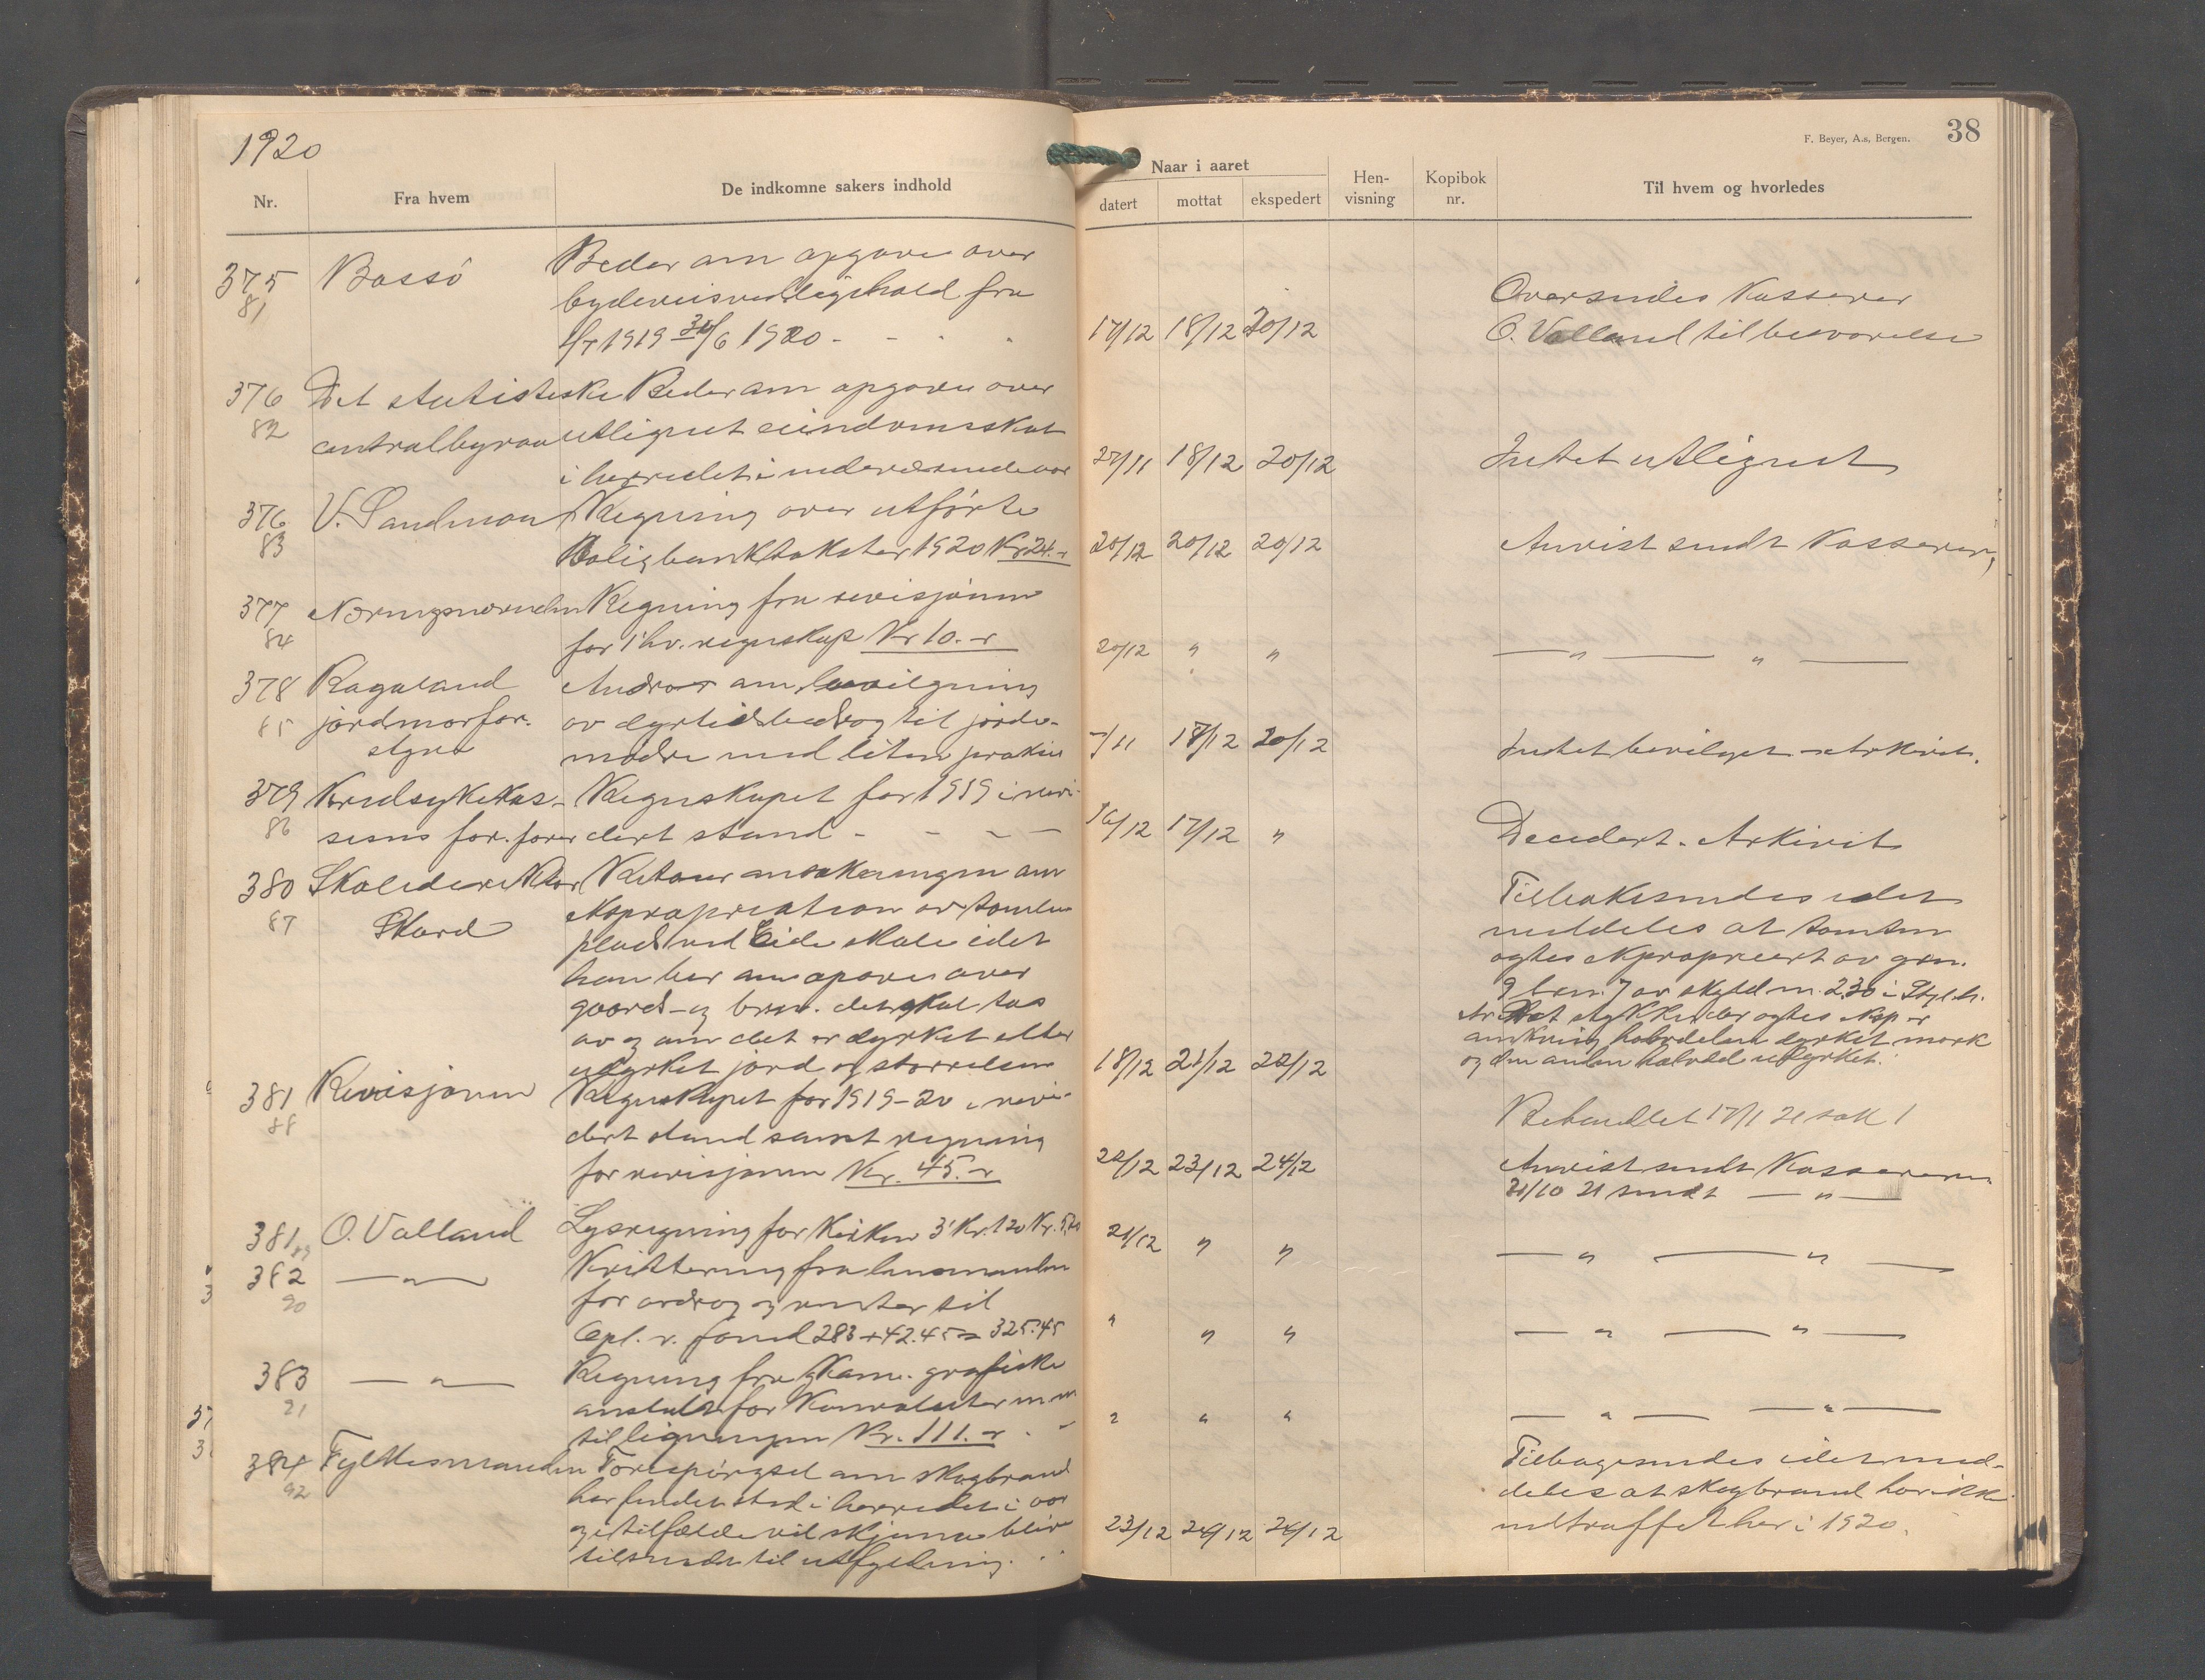 1920
Nr. Fra hvem De indkomne sakers indhold
375 Bassö Beder om opgave over
81 bygdeveisvedligehold fra
1/7 1919 30/6 1920 - - - -
376 Det statistiske Beder om opgave over
82 centralbyraa utlignet eiendomsskat
i herredet i nedværende aar
376 V. Sandmon Regning over utförte
83 Boligbanktakster 1920 Kr 24.-
377 Næringsnevnden Regning fra revisjonen
84 for 1 hv. regnskap Kr 10.-
378 Rogaland Andrar om bevilgning
85 jordmorfor. av dyrtidsbidrag til jorde-
styre mødre med liten praksis
379 Kredsykekas- Regnskapet for 1919 i revi-
86 sens for. forer dert stand - - - -
380 Skoledirektør Retour ansøkningen om
87 Skard ekspropriation av tomte
plads ved Eide skole idet
han ber om opgave over
gaards- og brnr. det skal tas
av og om det er dyrket eller
udyrket jord og størrelsen
381 Revisjonen Regnskapet for 1919-20 i revi-
88 dert stand samt regning
for revisjonen Kr. 45.-
381 89 O. Valland Lysregning for Kirken 3' Kr. 120 Kr.
382 — " — Kvittering fra lensmanden
90 for avdrag og renter til
Opl. v. fond 283 + 42.45 = 325.45
383 — " — Regning fra Kam. grafiske
91 anstalt for Konvolutter m m
til ligningen Kr. 111.-
384 Fylkesmanden Forespörgsel om skogbrand
92 har fundet sted i herredet i aar
og i tilfælde vil skjema blive
tilsendt til utfyldning.
38
F. Beyer, A.s, Bergen.
Naar i aaret
datert mottat ekspedert Hen-visning Kopibok nr. Til hvem og hvorledes
Oversendes Kasserer
17/12 18/12 20/12 O. Valland til besvarelse
27/11 18/12 20/12 Intet utlignet
20/12 20/12 20/12 Anvist sendt Kasseren,
20/12 " " — " — " —
-/11 18/12 20/12 Intet bevilget - Arkivet.
16/12 17/12 " Decidert. Arkivet
Tilbakesendes idet
meddeles at tomten
agtes ekspropriert av grn.
9 brn. 7 av skyld m. 2,30 i Styl.h.
Ar Det stykke der agtes eksp er
omkring halvdelen dyrket mark
18/12 21/12 22/12 og den anden halvdel udyrket.
Behandlet 17/1 21 sak 1
22/12 23/12 24/12 Anvist sendt Kasseren
21/10 21 sendt — " —
21/12 " " — " — " —
" " " — " — " —
" " " — " — — " —
Tilbagesendes idet med-
deles at skogbrand har ikke
23/12 24/12 24/12 indtruffet her i 1920.